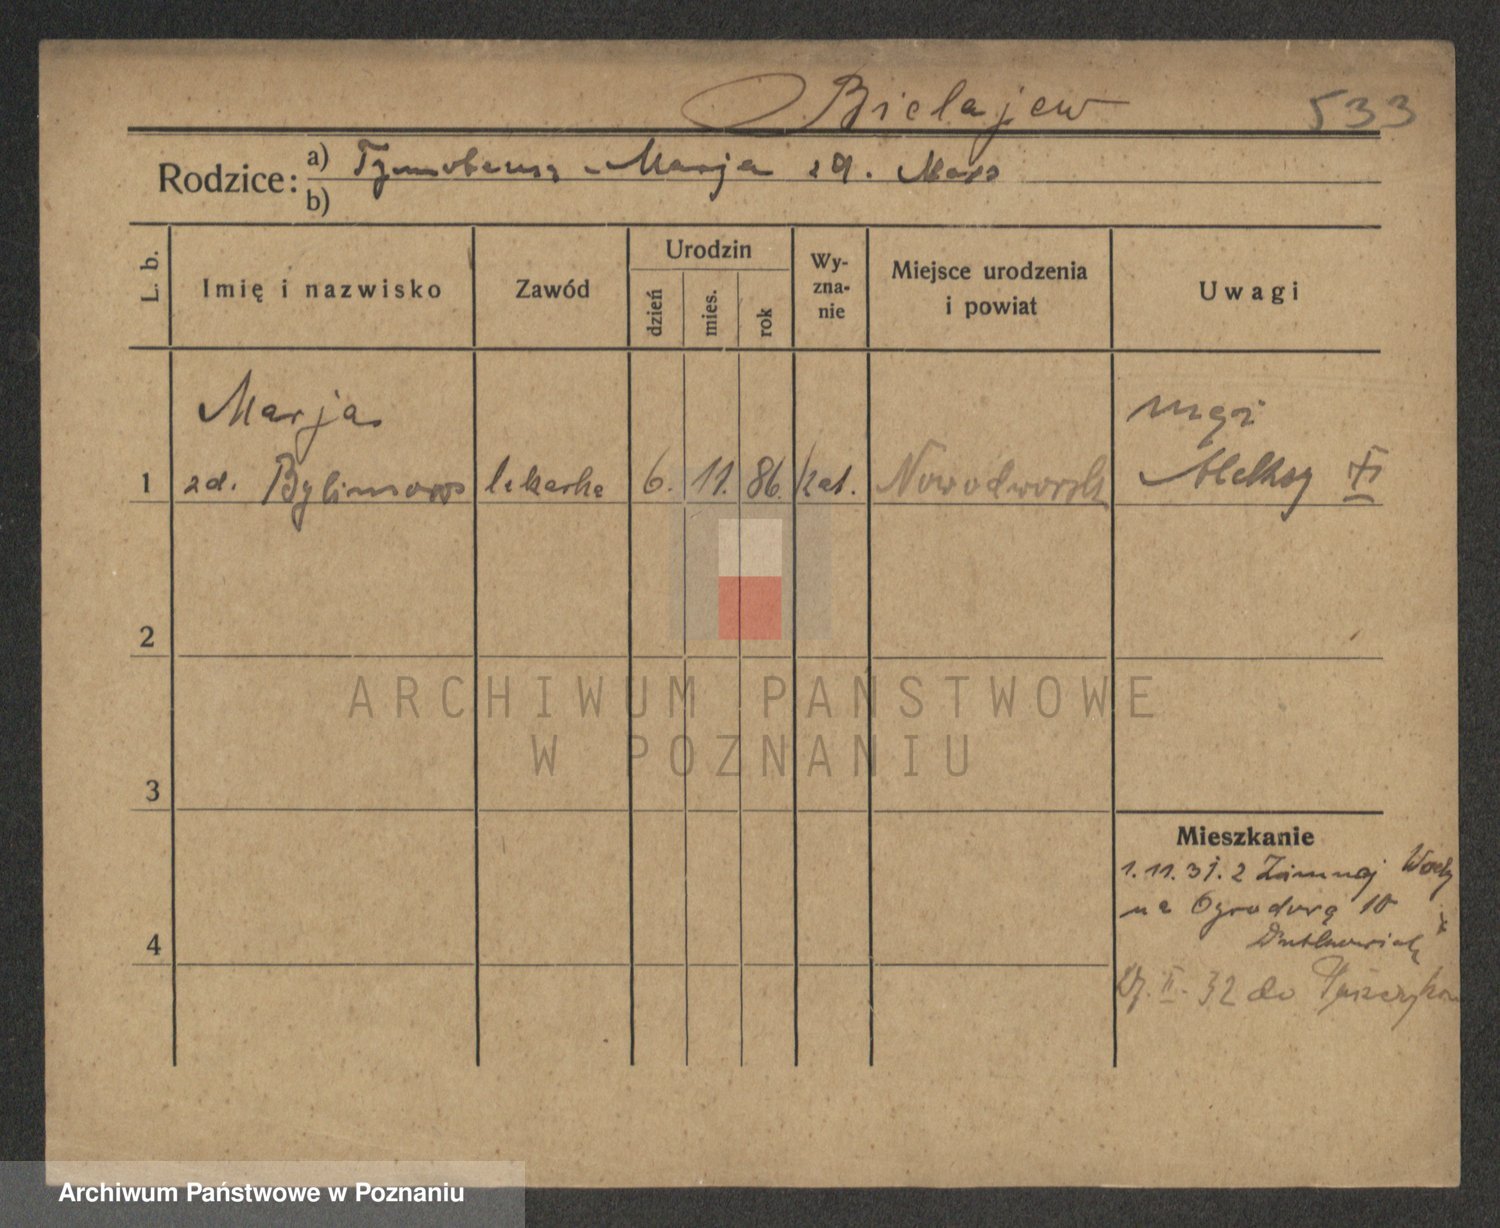 Bielajew 533
Rodzice: a) Tymoteusz - Marja zd.
b)
L. b.
Imię i nazwisko
Zawód
Urodzin
dzień
mies.
rok
Wy-
zna-
nie
Miejsce urodzenia
i powiat
Uwagi
Marja
mąż
1 zd. lekarka 6. 11. 86. kat. Nowodworsk Aleksy
2
3
4
Mieszkanie
1. 11. 31. z Zimnej Wody
na Ogrodową 10
II. 32 do
ARCHIWUM PAŃSTWOWE
W POZNANIU
Archiwum Państwowe w Poznaniu